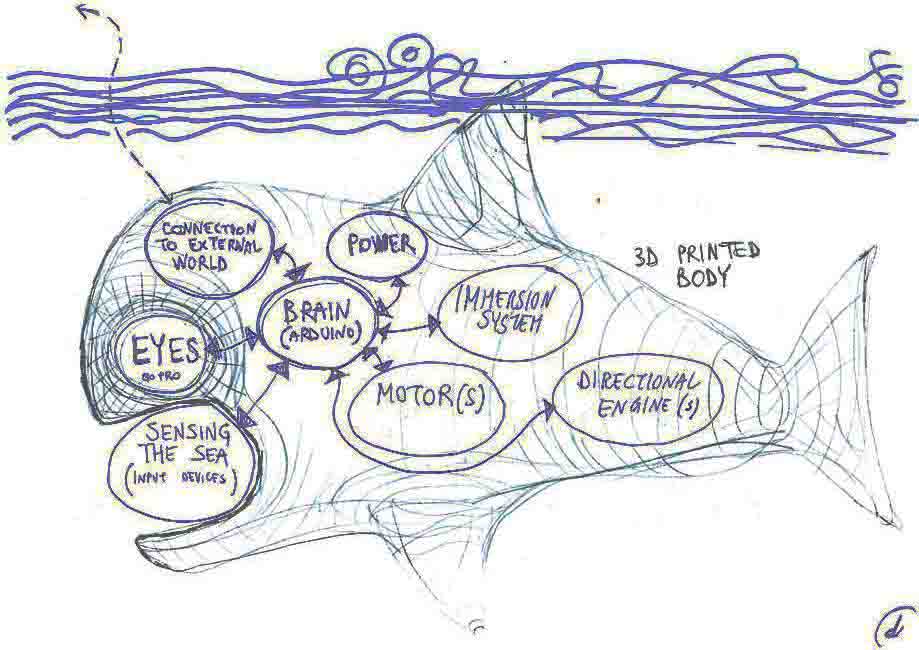 CONNECTION
TO EXTERNAL
WORLD
POWER
3D PRINTED
BODY
BRAIN
(ARDUINO)
IMMERSION
SYSTEM
EYES
GO PRO
MOTOR(S)
DIRECTIONAL
ENGINE(S)
SENSING
THE SEA
(INPUT DEVICES)
d